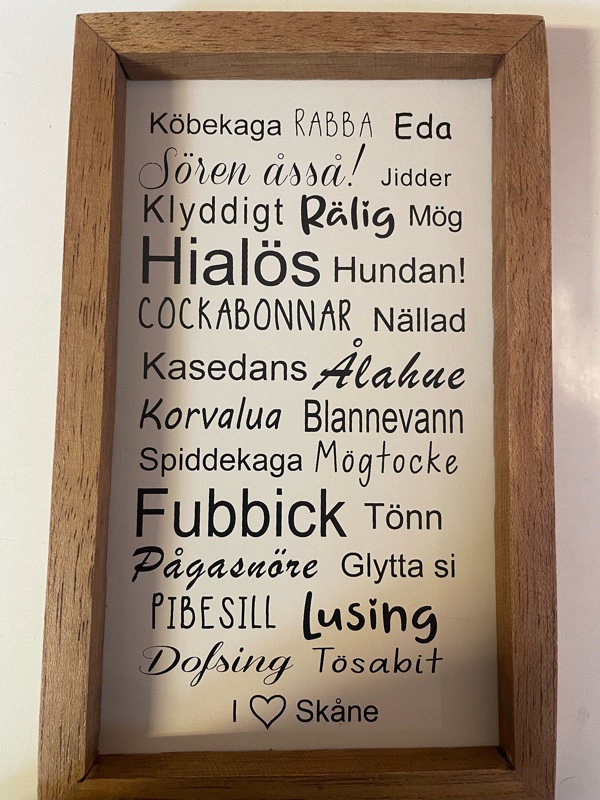 Köbekaga RABBA Eda
Sören åsså! Jidder
Klyddigt Rälig Mög
Hialös Hundan!
COCKABONNAR Nällad
Kasedans Ålahue
Korvalua Blannevann
Spiddekaga Mögtocke
Fubbick Tönn
Pågasnöre Glytta si
PIBESILL Lusing
Dofsing Tösabit
I ♡ Skåne